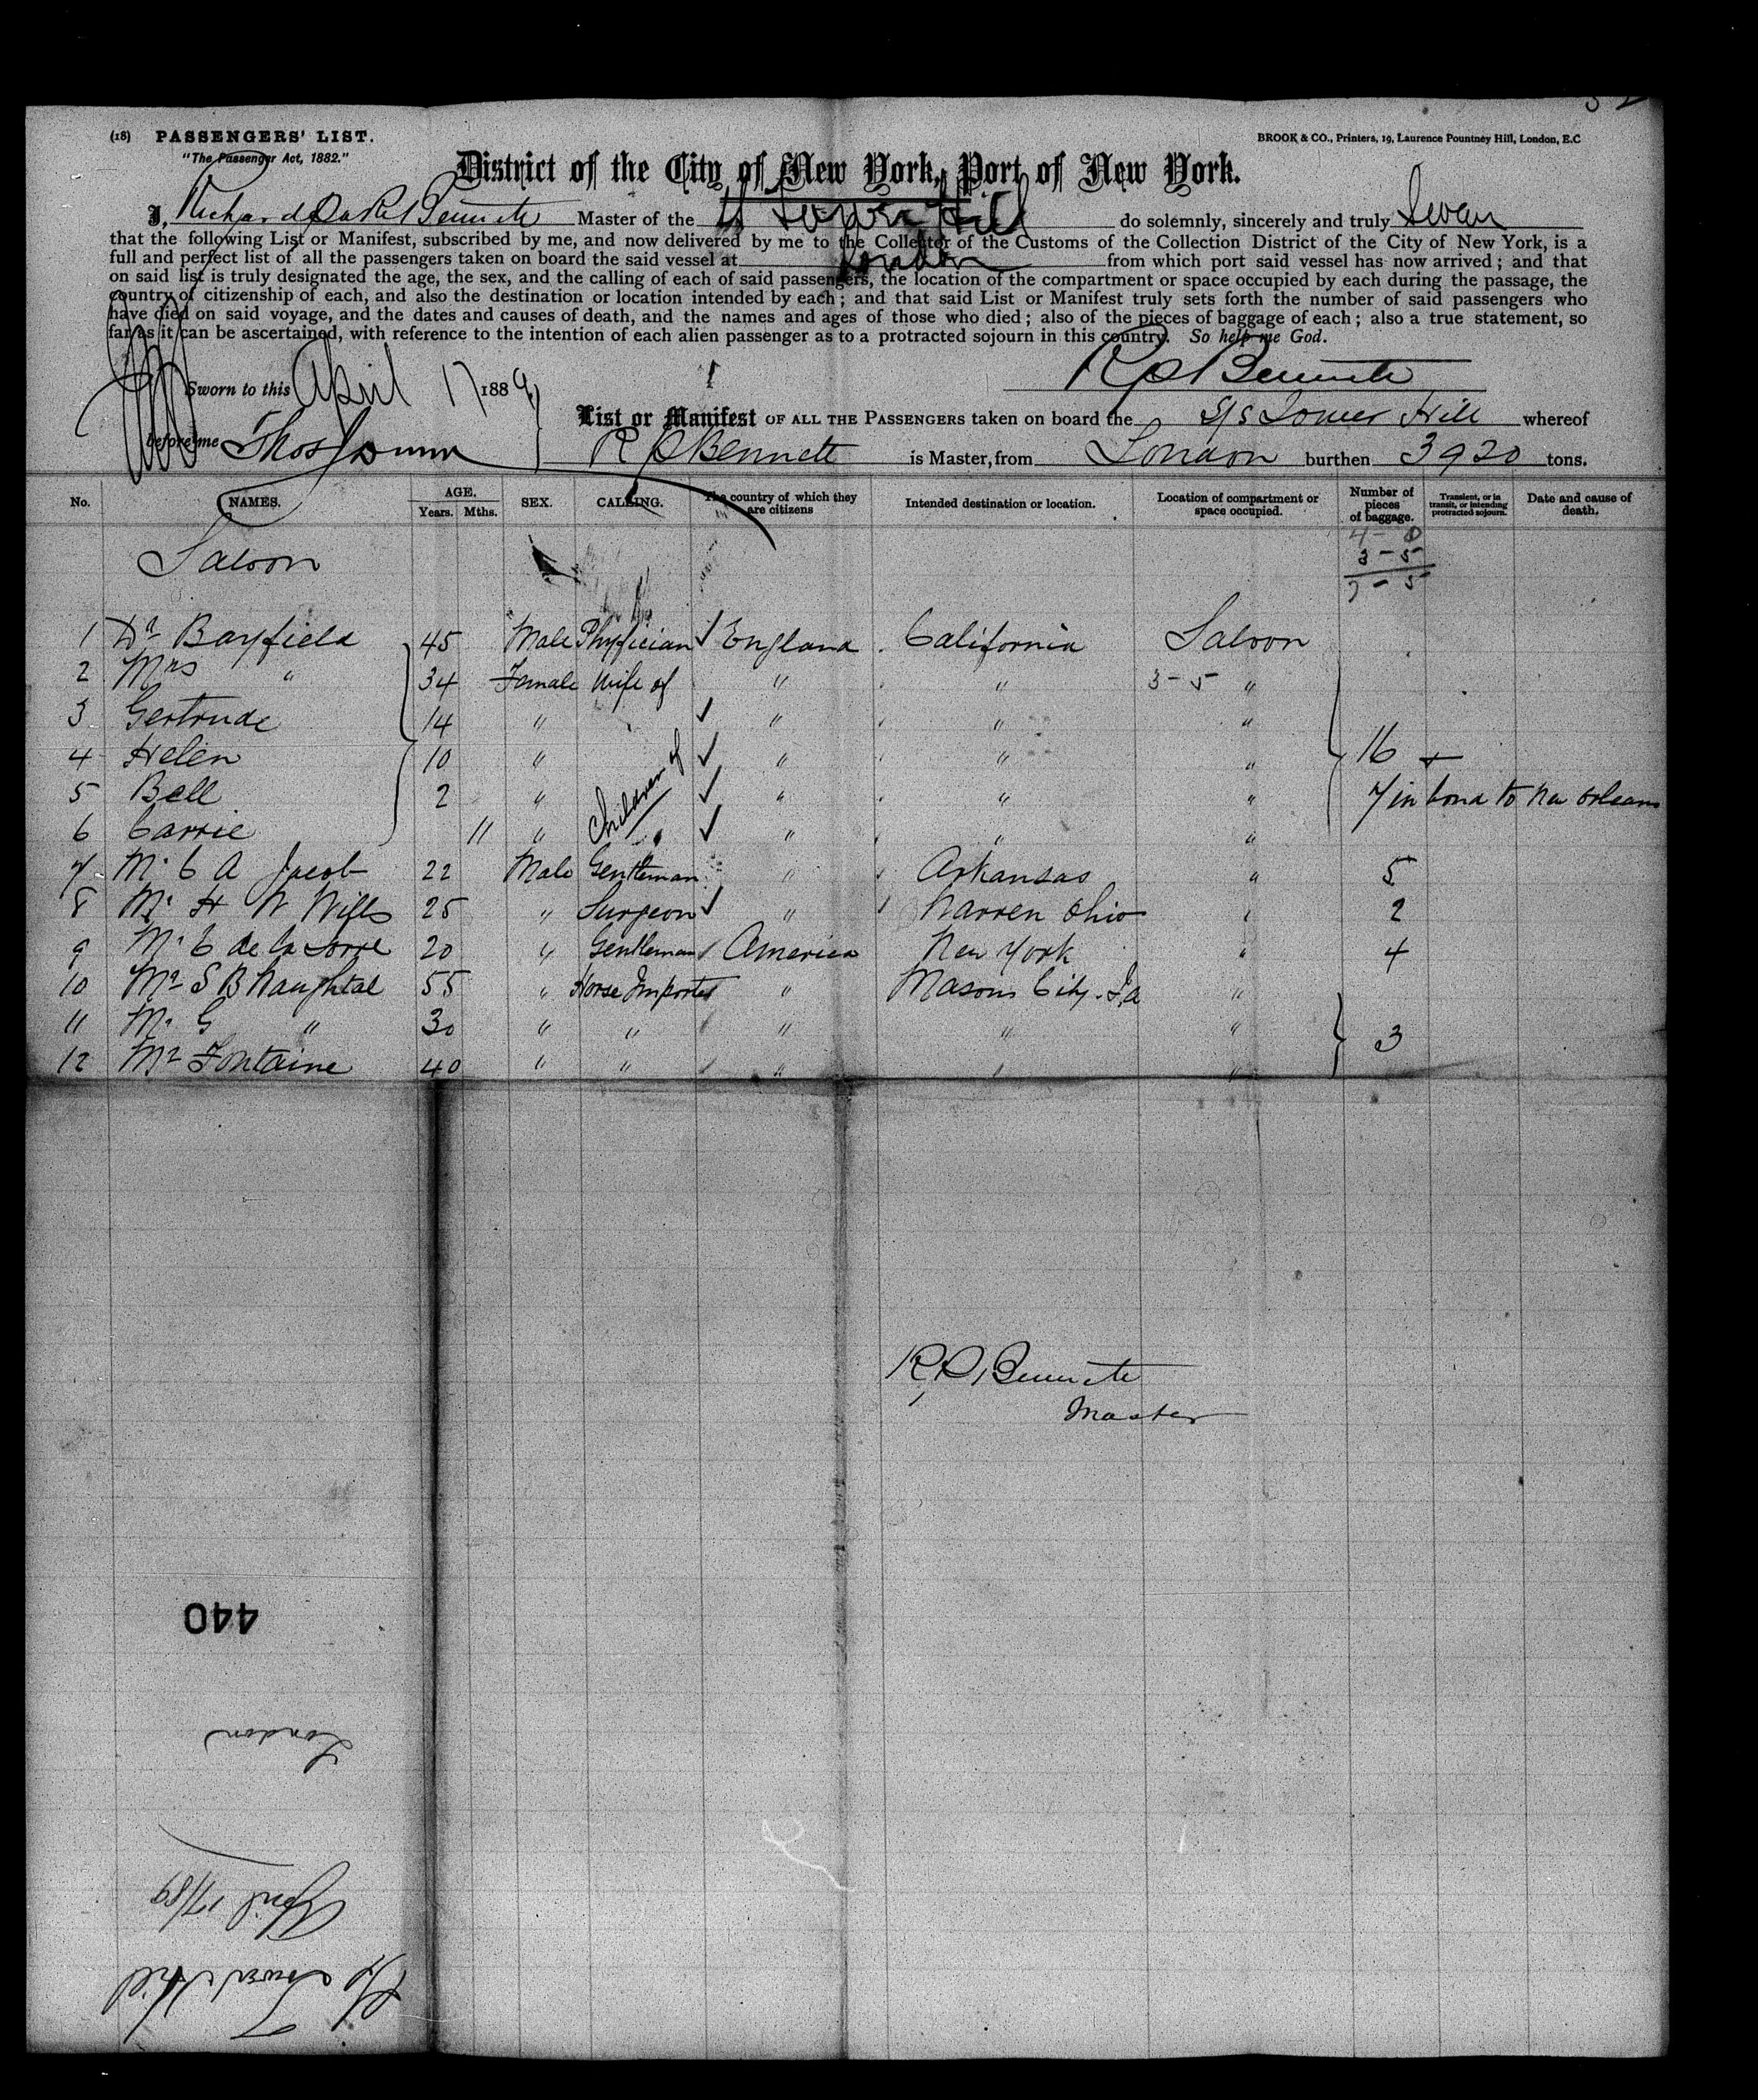 (18) PASSENGERS' LIST.
BROOK & CO., Printers, 19, Laurence Pountney Hill, London, E.C
"The Passenger Act, 1882."
District of the City of New York, Port of New York.
I, Richard Bennett Master of the SS Tower Hill do solemnly, sincerely and truly Swear
that the following List or Manifest, subscribed by me, and now delivered by me to the Collector of the Customs of the Collection District of the City of New York, is a
full and perfect list of all the passengers taken on board the said vessel at London from which port said vessel has now arrived; and that
on said list is truly designated the age, the sex, and the calling of each of said passengers, the location of the compartment or space occupied by each during the passage, the
country of citizenship of each, and also the destination or location intended by each; and that said List or Manifest truly sets forth the number of said passengers who
have died on said voyage, and the dates and causes of death, and the names and ages of those who died; also of the pieces of baggage of each; also a true statement, so
far as it can be ascertained, with reference to the intention of each alien passenger as to a protracted sojourn in this country. So help me God.
R P Bennett
Sworn to this April 17 1889
List or Manifest OF ALL THE PASSENGERS taken on board the S/S Tower Hill whereof
before me Thos Dunn
R P Bennett is Master, from London burthen 3920 tons.
No. NAMES. AGE. Years. Mths. SEX. CALLING. The country of which they are citizens Intended destination or location. Location of compartment or space occupied. Number of pieces of baggage. Transient, or in transit, or intending protracted sojourn. Date and cause of death.
4 - 0
3 - 5
7 - 5
Saloon
1 Dr Bayfield 45 Male Physician England California Saloon
2 Mrs " 34 Female Wife of " " 3 - 5 "
3 Gertrude 14 " " " "
4 Helen 10 " Children of " " " 16
5 Bell 2 " " " " 7 in bond to New Orleans
6 Carrie 11 " " " " "
7 Mr C A Jacob 22 Male Gentleman " Arkansas " 5
8 Mr H W Wills 25 " Surgeon " Warren Ohio " 2
9 Mr C de la Torre 20 " Gentleman America New York " 4
10 Mr S B Naughtal 55 " Horse Importer " Masons City. Ia "
11 Mr G " 30 " " " " " 3
12 Mr Fontaine 40 " " " " "
R P Bennett
Master
440
London
April 17/89
S/S Tower Hill